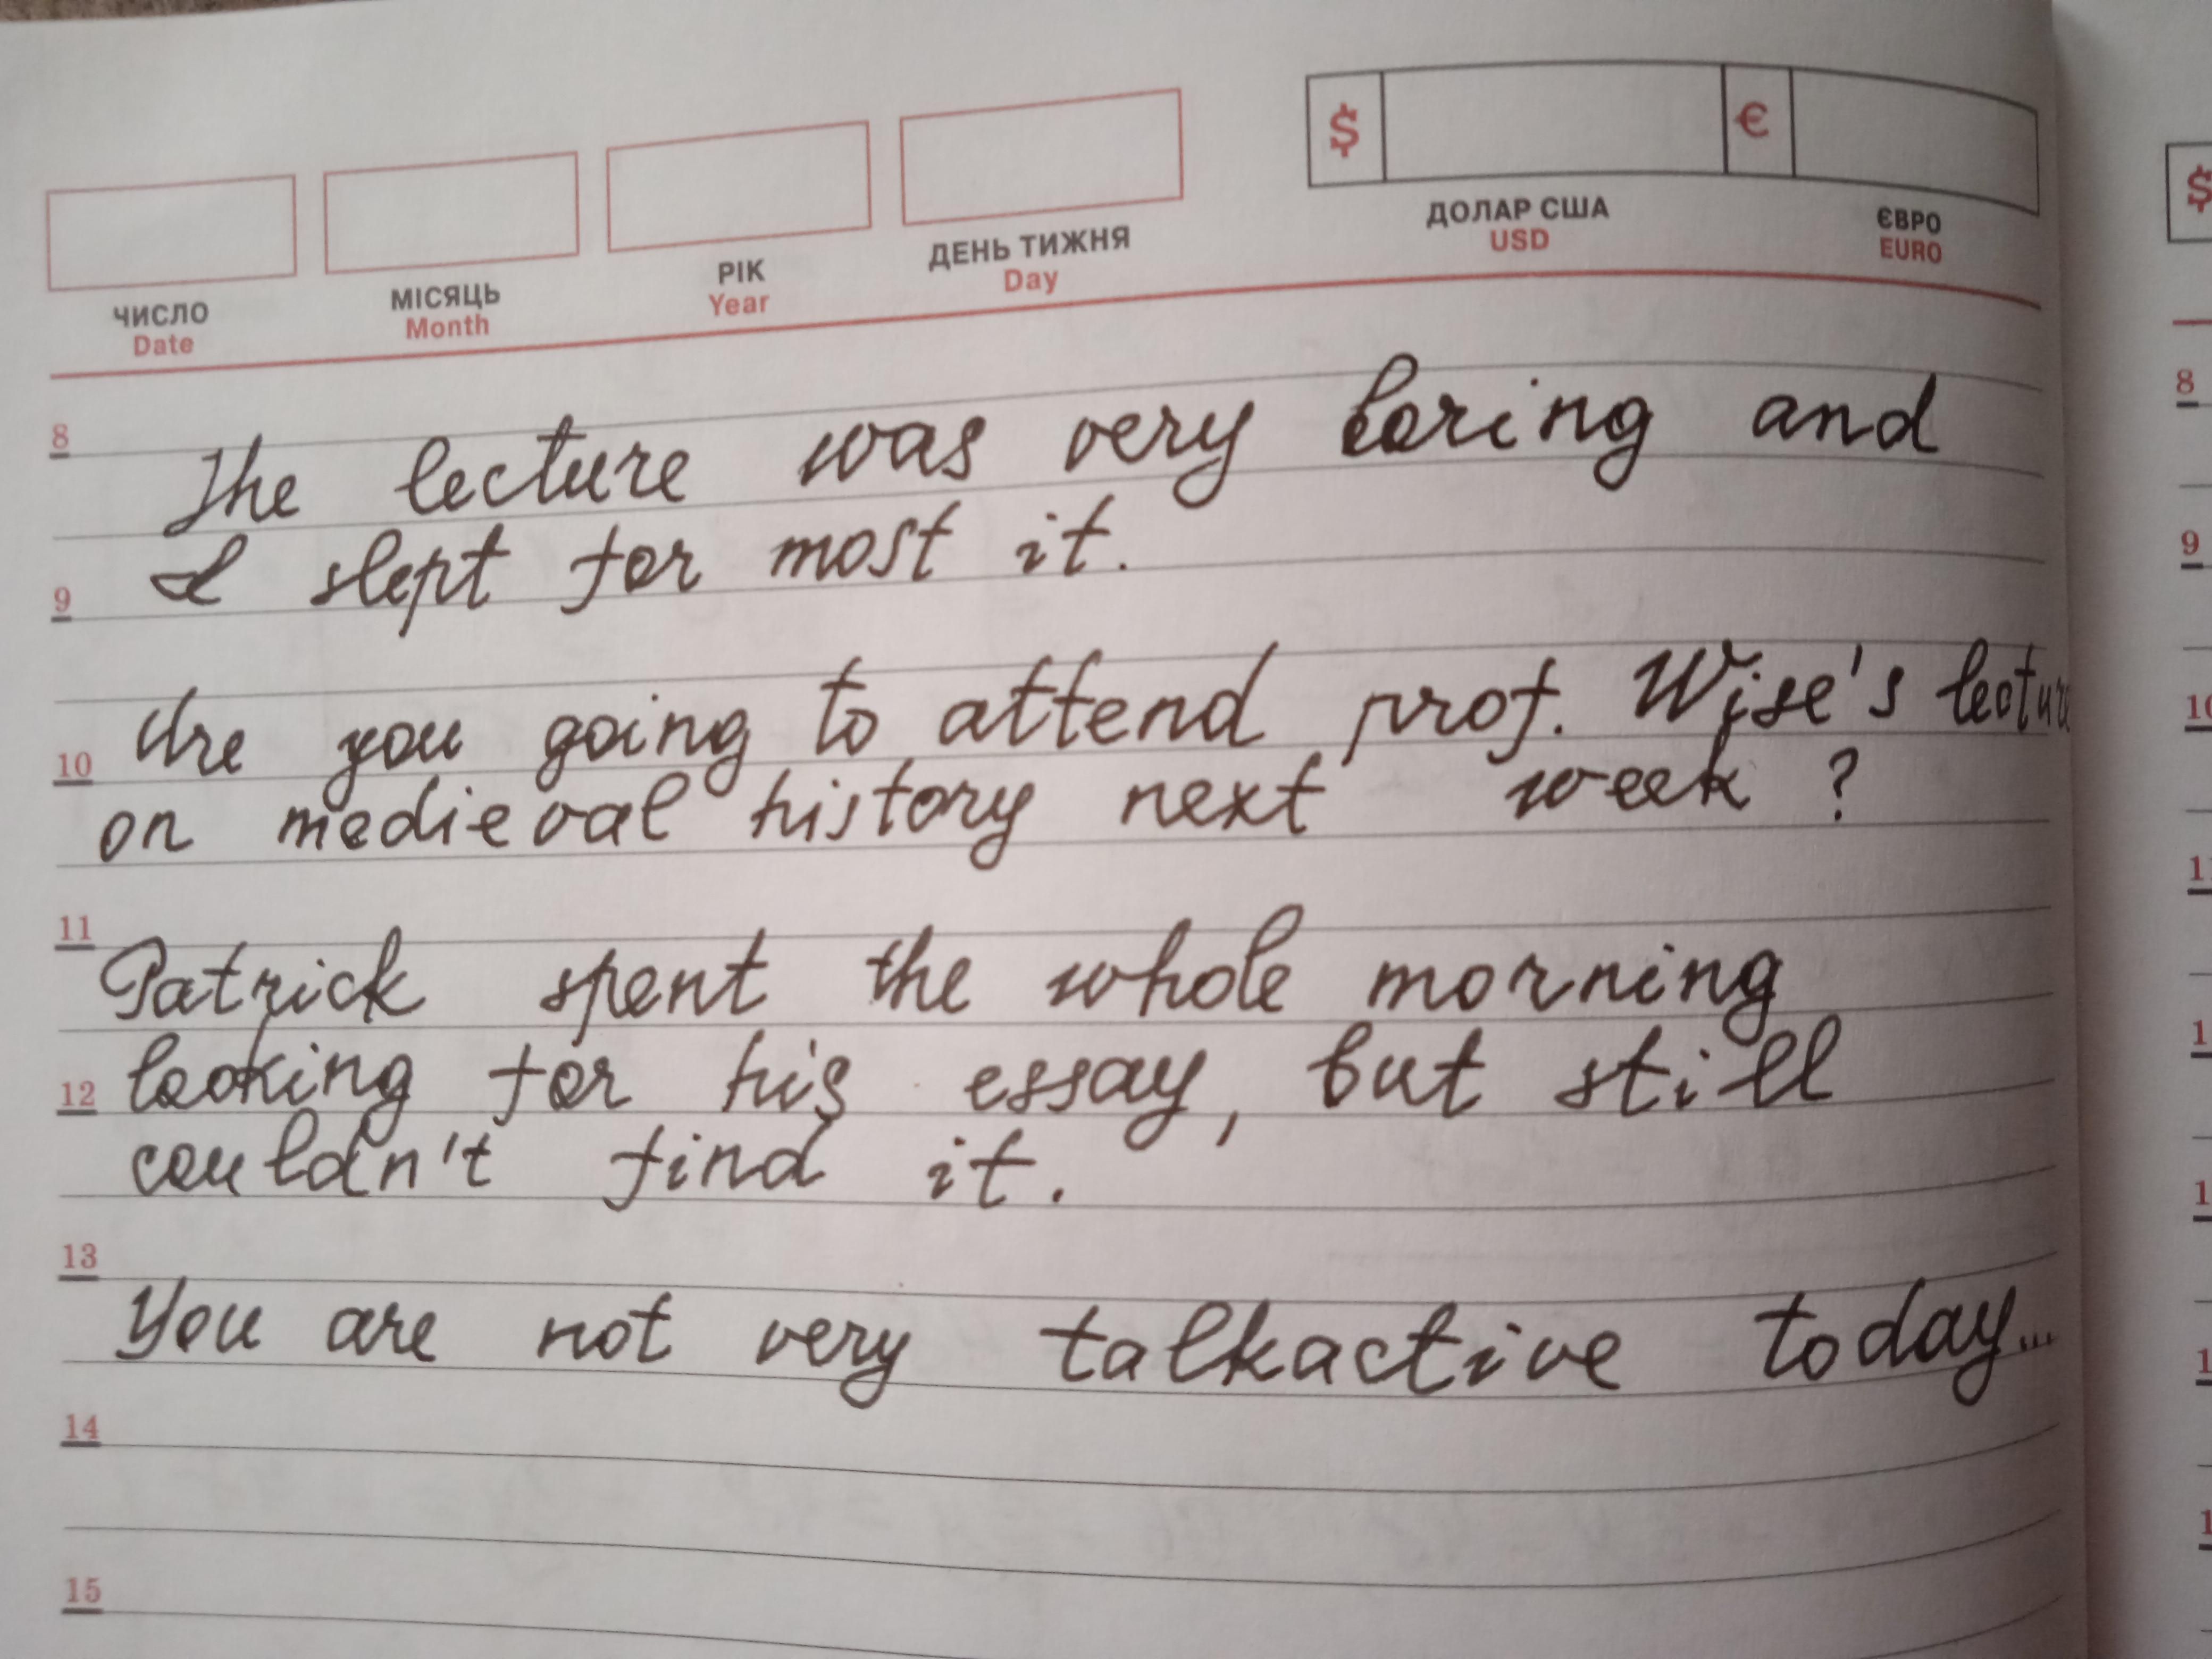 $ €
ДОЛАР США ЄВРО
USD EURO
ЧИСЛО МІСЯЦЬ РІК ДЕНЬ ТИЖНЯ
Date Month Year Day
8 The lecture was very boring and
9 I slept for most it.
10 Are you going to attend prof. Wise's lecture
on medieval history next week ?
11
Patrick spent the whole morning
12 looking for his essay, but still
couldn't find it.
13
You are not very talkactive today...
14
15
$
8
9